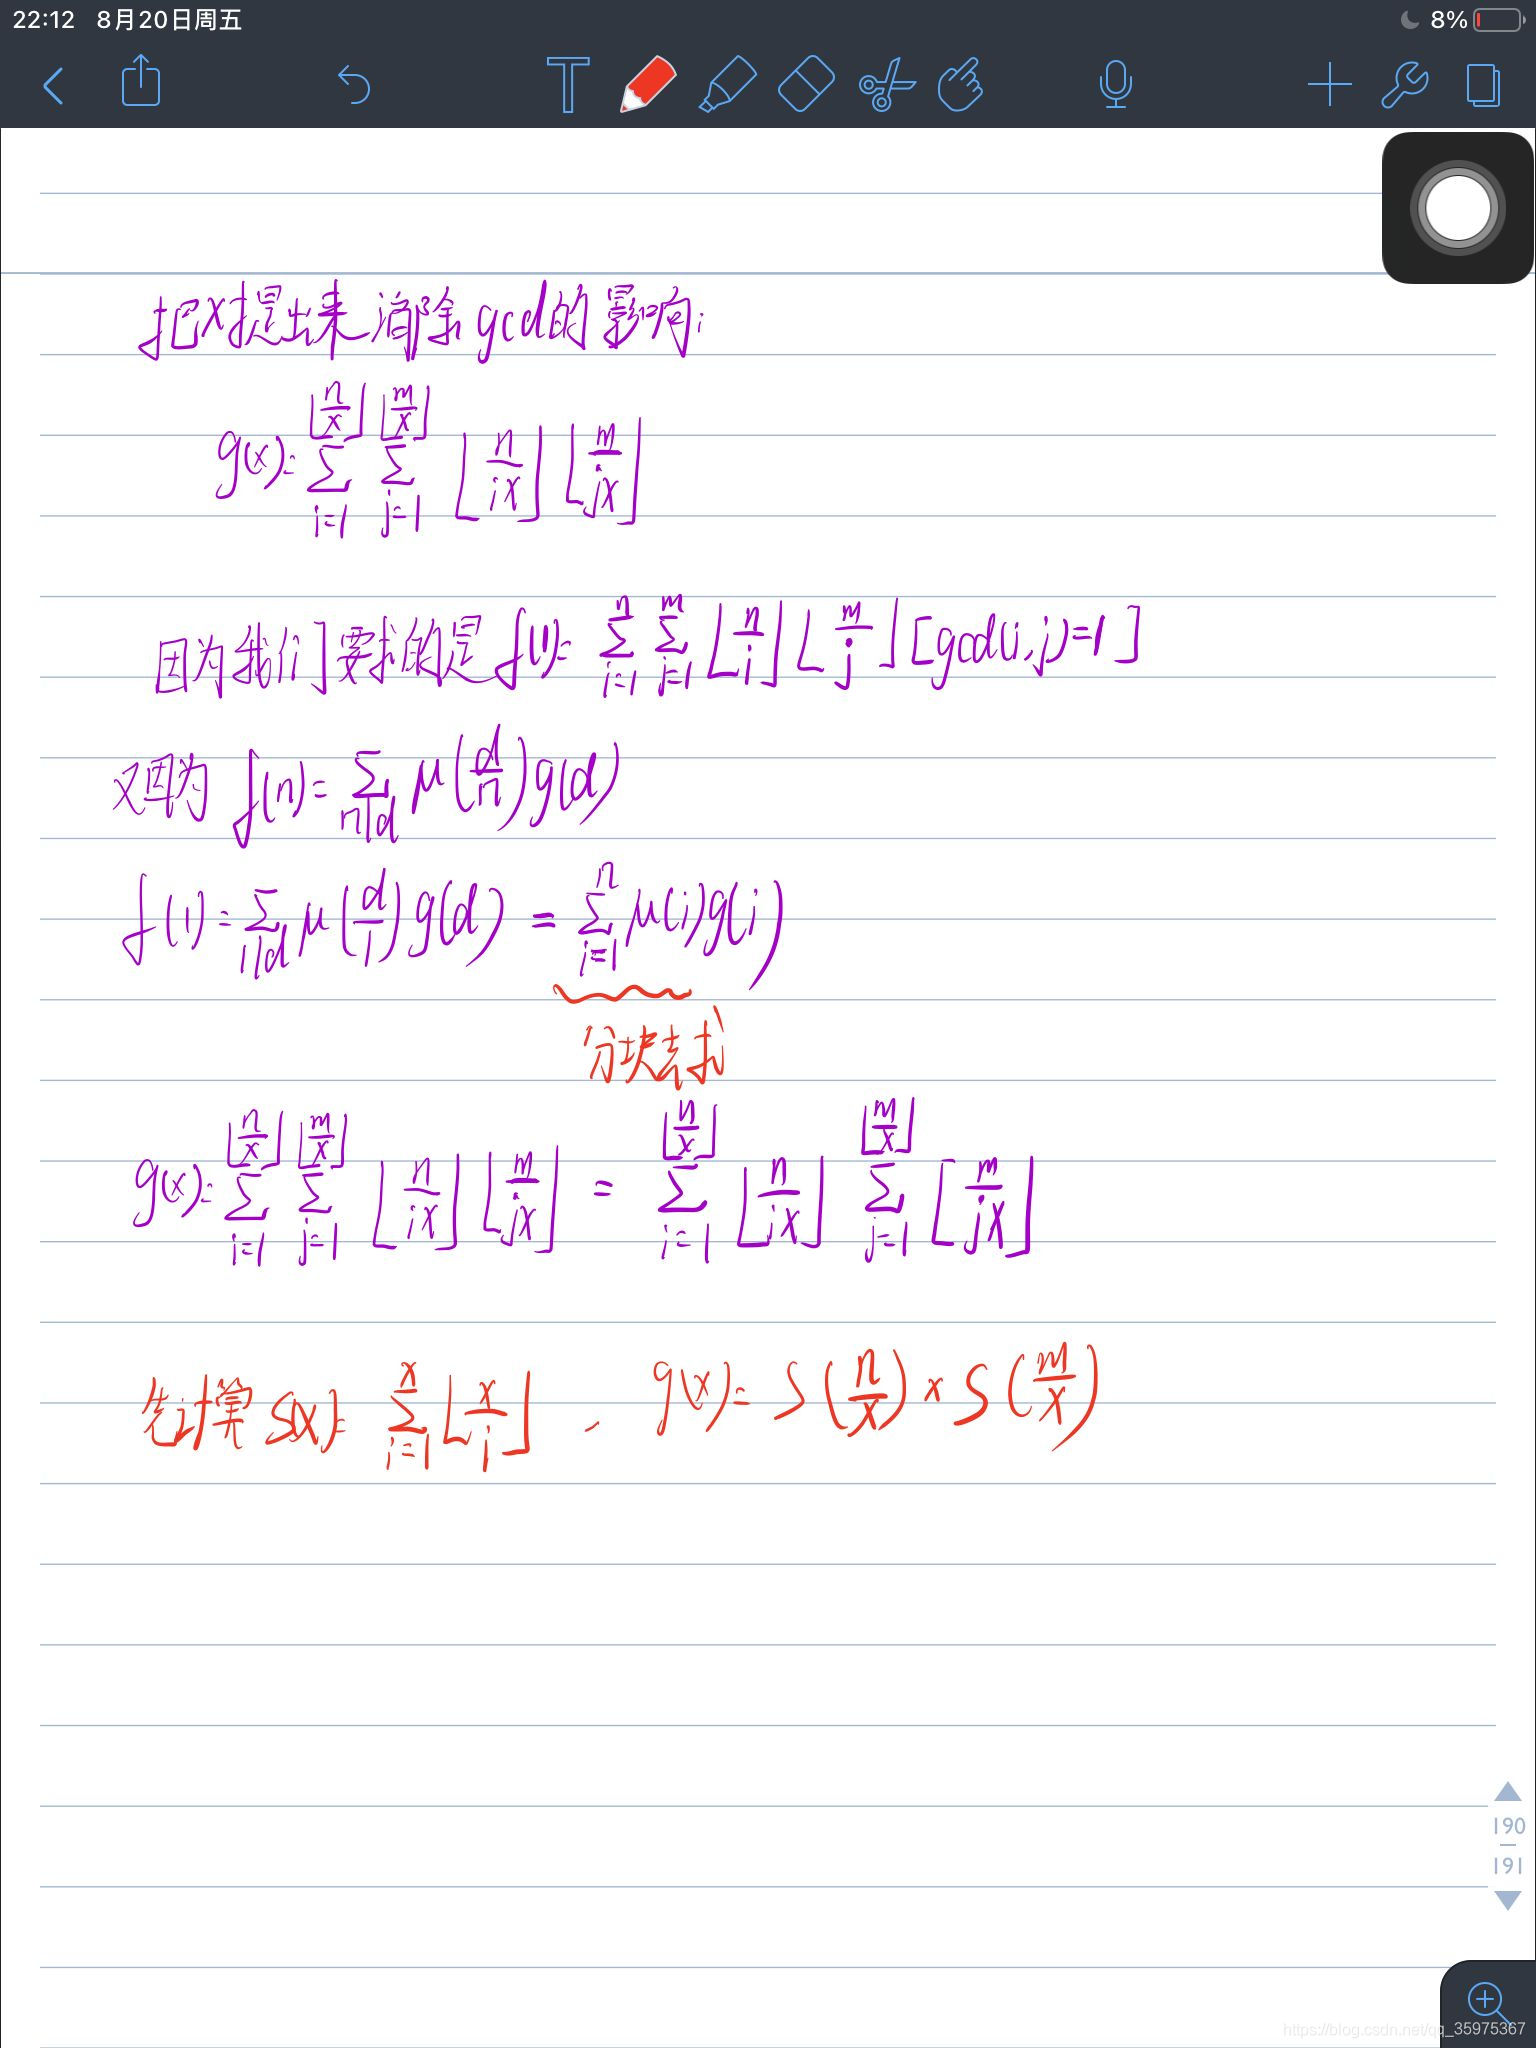 22:12 8月20日周五 8%
把x提出来消除gcd的影响:
g(x)=∑_{i=1}^{⌊n/x⌋} ∑_{j=1}^{⌊m/x⌋} ⌊n/ix⌋ ⌊m/jx⌋
因为我们要求的是 f(1)=∑_{i=1}^{n} ∑_{j=1}^{m} ⌊n/i⌋ ⌊m/j⌋ [gcd(i,j)=1]
又因为 f(n)=∑_{n|d} μ(d/n) g(d)
f(1)=∑_{1|d} μ(d/1) g(d) = ∑_{i=1}^{n} μ(i)g(i)
分块去求
g(x)=∑_{i=1}^{⌊n/x⌋} ∑_{j=1}^{⌊m/x⌋} ⌊n/ix⌋ ⌊m/jx⌋ = ∑_{i=1}^{⌊n/x⌋} ⌊n/ix⌋ ∑_{j=1}^{⌊m/x⌋} [m/jx⌋
先计算 S(x)=∑_{i=1}^{x} ⌊x/i⌋ 、 g(x)= S(n/x) × S(m/x)
190
191
https://blog.csdn.net/qq_35975367